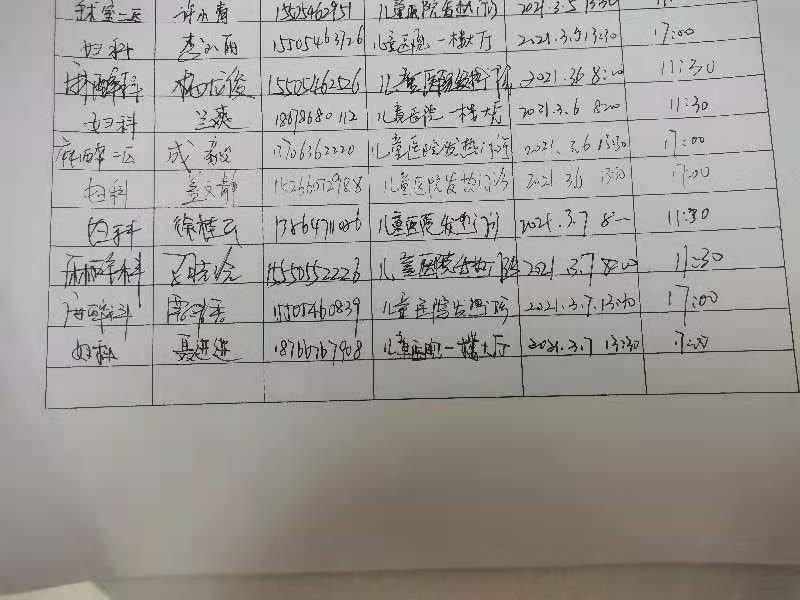 手术室二区 许小青 15505462951 儿童医院发热门诊 2021.3.5 13:30
妇科 李小丽 15505463726 儿童医院一楼大厅 2021.3.5 13:30 17:00
麻醉科 15505462526 儿童医院发热门诊 2021.3.6 8:00 11:30
妇科 兰爽 18678680112 儿童医院一楼大厅 2021.3.6 8:00 11:30
麻醉二区 成毅 13706362220 儿童医院发热门诊 2021.3.6 13:30 17:00
妇科 孟文静 儿童医院发热门诊 2021 3.6 13:30 17:00
妇科 徐桂云 儿童医院发热门诊 2021.3.7 8:00 11:30
麻醉科 15550552226 儿童医院发热门诊 2021.3.7 8:00 11:30
麻醉科 15505460839 儿童医院发热门诊 2021.3.7.13:30 17:00
妇科 聂进进 18766767908 儿童医院一楼大厅 2021.3.7 13:30 17:00